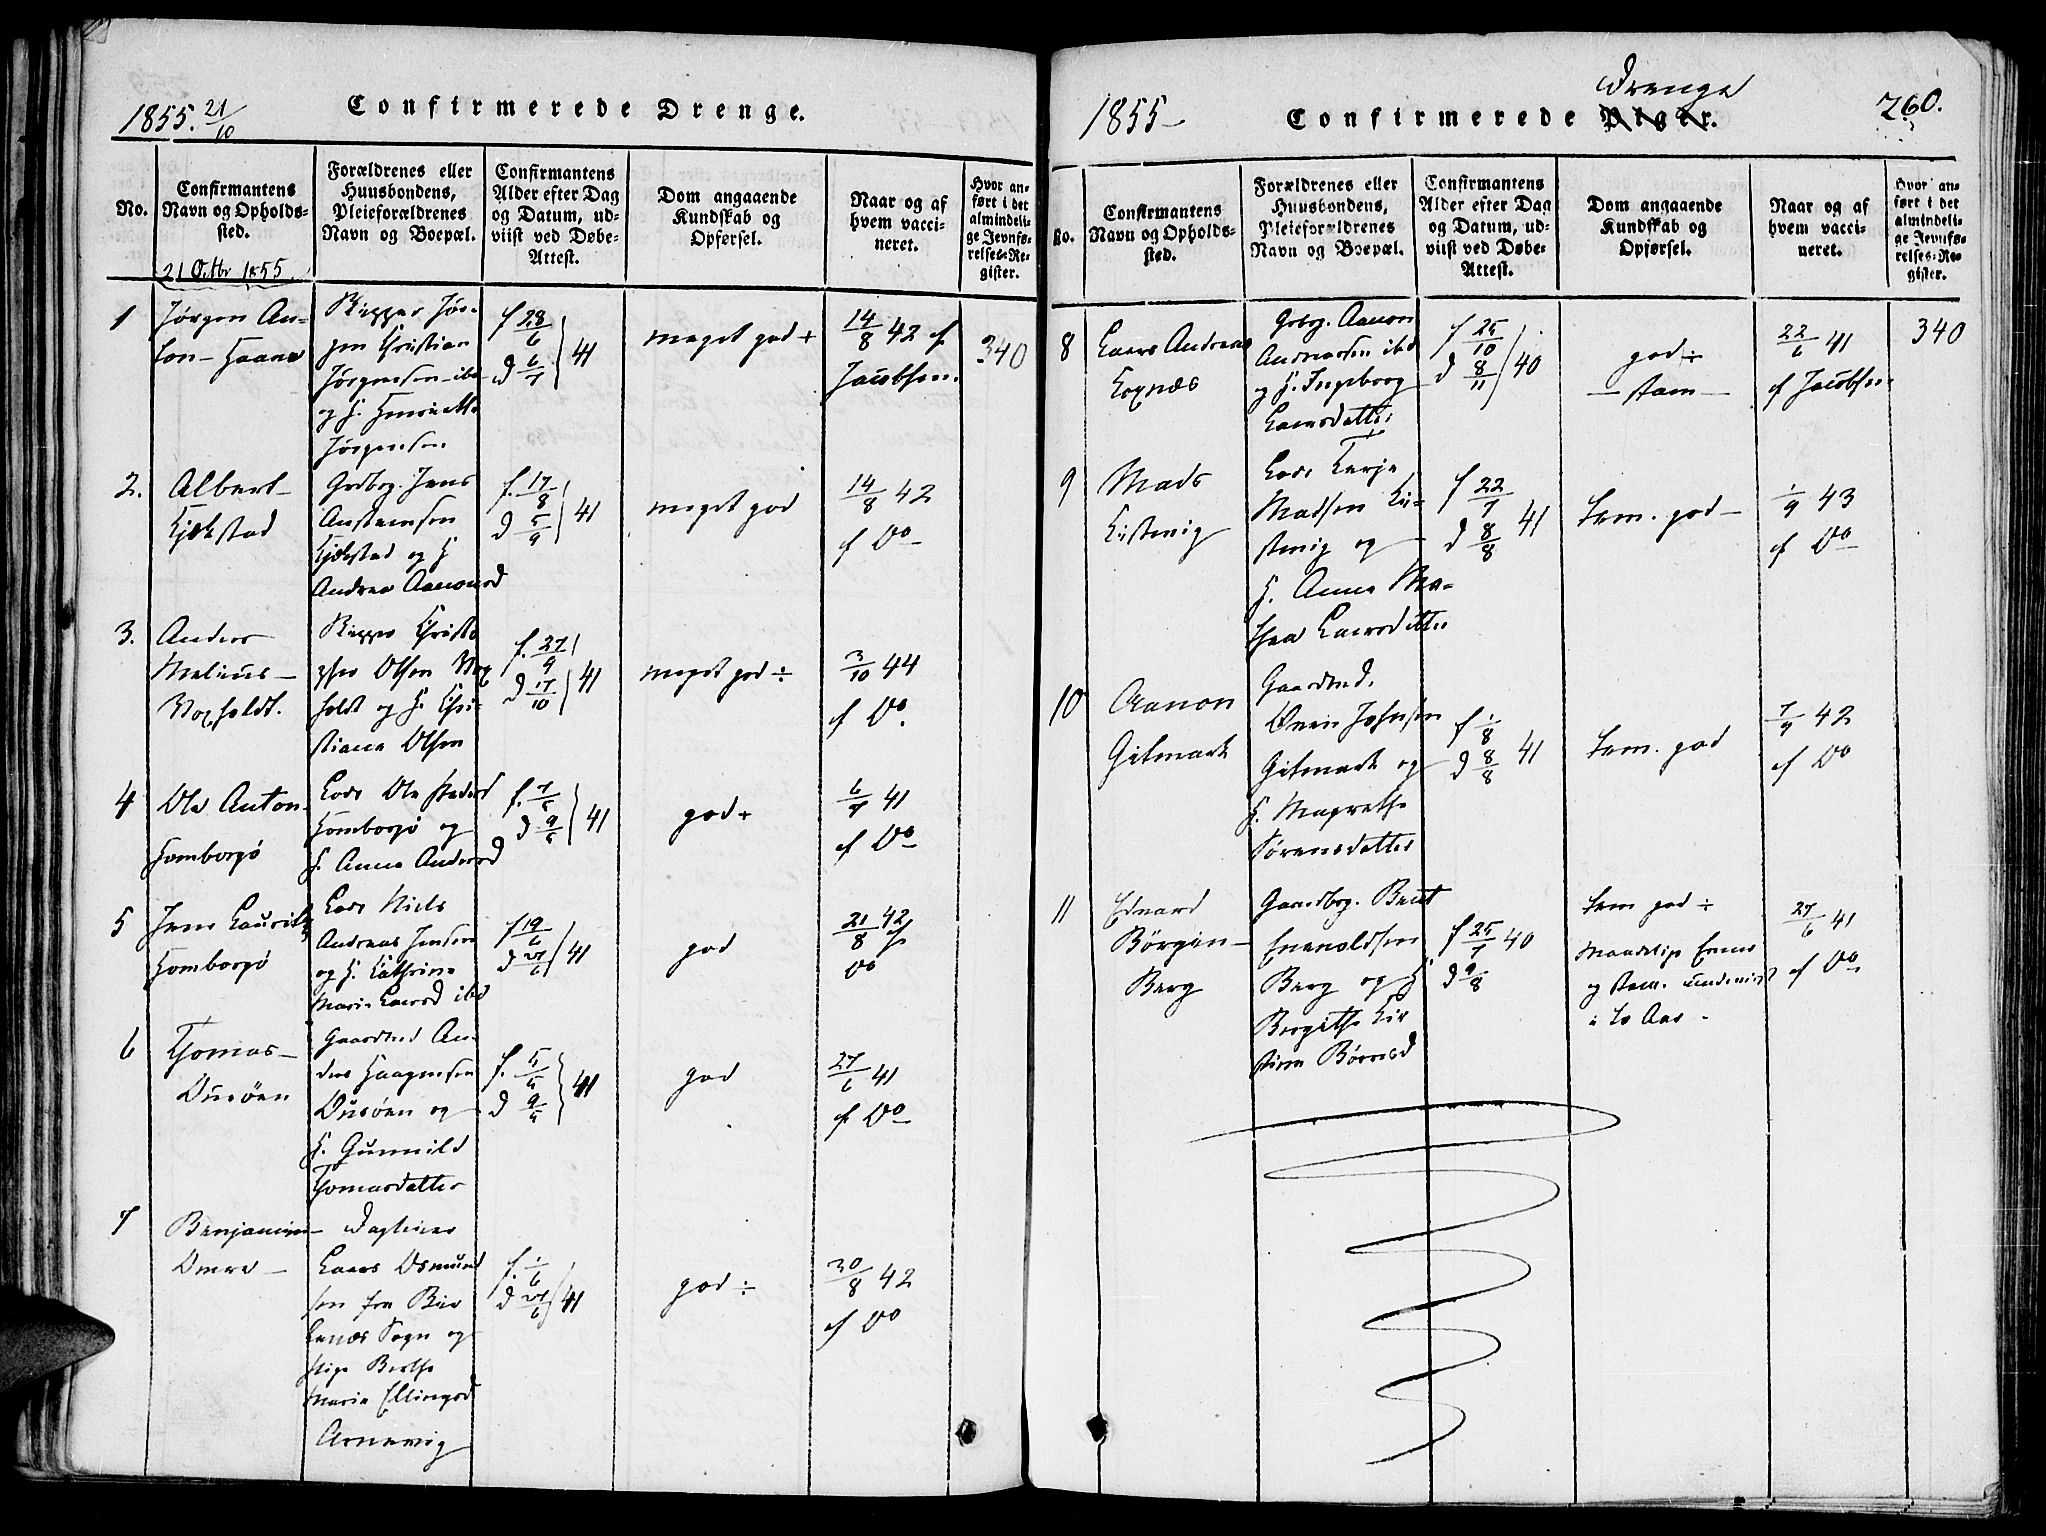 1855. 21/10
Confirmerede Drenge.
No.
Confirmantens Navn og Opholds-
sted.
Forældrenes eller
Huusbondens,
Pleieforældrenes
Navn og Boepæl.
Confirmantens
Alder efter Dag
og Datum, ud-
viist ved Døbe-
Attest.
Dom angaaende
Kundskab og
Opførsel.
Naar og af
hvem vacci-
neret.
Hvor an-
ført i det
almindeli-
ge Jevnfø-
relses-Re-
gister.
21 Octbr 1855.
1
Jørgen An-
ton - Haane
Skipper Jør-
gen Christian
Jørgensen ibd
og H. Henriette
Jørgensen
f 28/6
d 6/7 41
meget god +
14/8 42 af
Jacobsen.
340
2.
Albert
Kjækstad
Grdbrg. Jens
Anstensen
Kjækstad og H
Andrea Aanonsd
f. 17/8
d 5/9 41
meget god
14/8 42
af Do
3.
Anders
Melius
Skipper Christo
pher Olsen
holdt og H. Chri-
stiane Olsen
f. 27/9
d 17/10 41
meget god ÷
3/10 44
af Do.
4
Ole Anton
Homborgø
Lods Ole Pedersd
Homborgø og
H. Anne Andersd
41
god +
41
af Do
5
Jens Lauritz
Homborgø
Lods Niels
Andreas Jensen
og H. Cathrine
Marie Larsd ibd
f 19/6
41
god
21/8 42 af
Do
6
Thomas
Dusøen
Gaardmd An-
ders Haagensen
Dusøen og
H. Gunnild
Thomasdatter
41
god
27/6 41
af Do
7
Benjamin
Omre
Dagleier
Laers Osmund
sen fra Bir
kenæs Sogn og
Pige Berthe
Marie Ellingsd
Arnevig
f. 1/6
41
god ÷
30/8 42
af Do
1855
Confirmerede Piger.
Drenge
260.
No.
Confirmantens
Navn og Opholds-
sted.
Forældrenes eller
Huusbondens,
Pleieforældrenes
Navn og Boepæl.
Confirmantens
Alder efter Dag
og Datum, ud-
viist ved Døbe-
Attest.
Dom angaaende
Kundskab og
Opførsel.
Naar og af
hvem vacci-
neret.
Hvor an-
ført i det
almindeli-
ge Jevnfø-
relses-Re-
gister.
8
Laers Andreas
Hoxnæs
Grbrg. Aanon
Andreassen ibd
og H. Ingeborg
Laersdatter
f 25/10
d 8/11 40
god ÷
stam
22/6 41
af Jacobsen
340
9
Mads
Kistevig
Lods Terje
Madsen Ki-
stevig og
H. Anne Ma-
thea Laersdatter
f 22/7
d 8/8 41
tem. god
1/9 43
af Do
10
Aanon
Gitmark
Gaardmd.
Sven Johnsen
Gitmark og
H. Magrethe
Sørensdatter
f 1/8
d 8/8 41
tem. god
42
af Do
11
Edvard
Børgin
Berg
Gaardbrg. Bent
Enevoldsen
Berg og H
Bergithe Kir
stine Børresd
f 25/7 40
d 9/8
tem god ÷
og stam. underviist
i to Aar
27/6 41
af Do